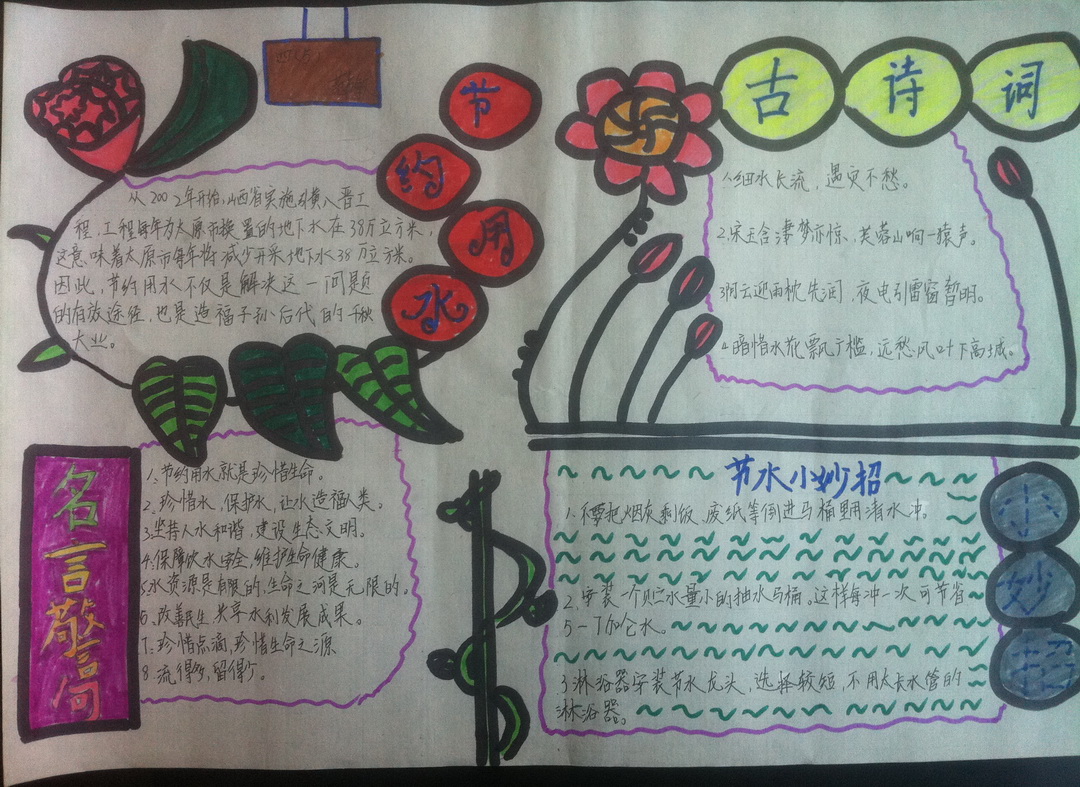 节约用水
从2002年开始,山西省实施引黄入晋工
程,工程每年为太原市换置的地下水在38万立方米,
这意味着太原市每年将减少开采地下水38万立方米。
因此,节约用水不仅是解决这一问题
的有效途径,也是造福子孙后代的千秋
大业。
古诗词
1.细水长流,遇灾不愁。
2.宋玉含凄梦亦惊,芙蓉山响一猿声。
3.阴云迎雨枕先润,夜电引雷窗暂明。
4.暗惜水花飘广槛,远愁风叶下高城。
名言警句
1.节约用水就是珍惜生命。
2.珍惜水,保护水,让水造福人类。
3.坚持人水和谐,建设生态文明。
4.保障饮水安全,维护生命健康。
5.水资源是有限的,生命之河是无限的。
6.改善民生 共享水利发展成果。
7.珍惜点滴,珍惜生命之源
8.流得多,留得少。
小妙招
节水小妙招
1.不要把烟灰剩饭、废纸等倒进马桶里用清水冲。
2.安装一个贮水量小的抽水马桶。这样每冲一次可节省
5-7加仑水。
3.淋浴器安装节水龙头,选择较短,不用太长水管的
淋浴器。